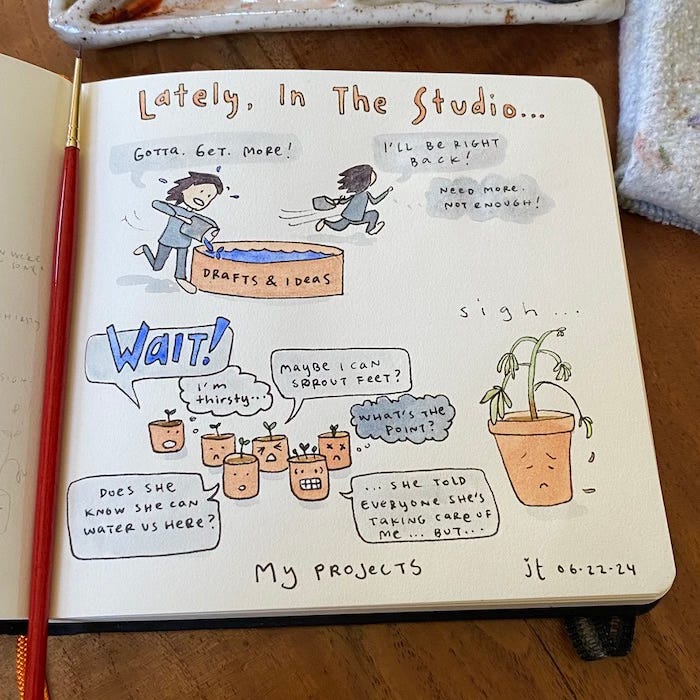 Lately, In The Studio...
GOTTA. GET. MORE!
I'LL BE RIGHT
BACK!
NEED MORE.
NOT ENOUGH!
DRAFTS & IDEAS
sigh...
WAIT!
I'm
thirsty...
MAYBE I CAN
SPROUT FEET?
WHAT'S THE
POINT?
DOES SHE
KNOW SHE CAN
WATER US HERE?
... SHE TOLD
EVERYONE SHE'S
TAKING CARE OF
ME ... BUT...
MY PROJECTS
jt 06-22-24